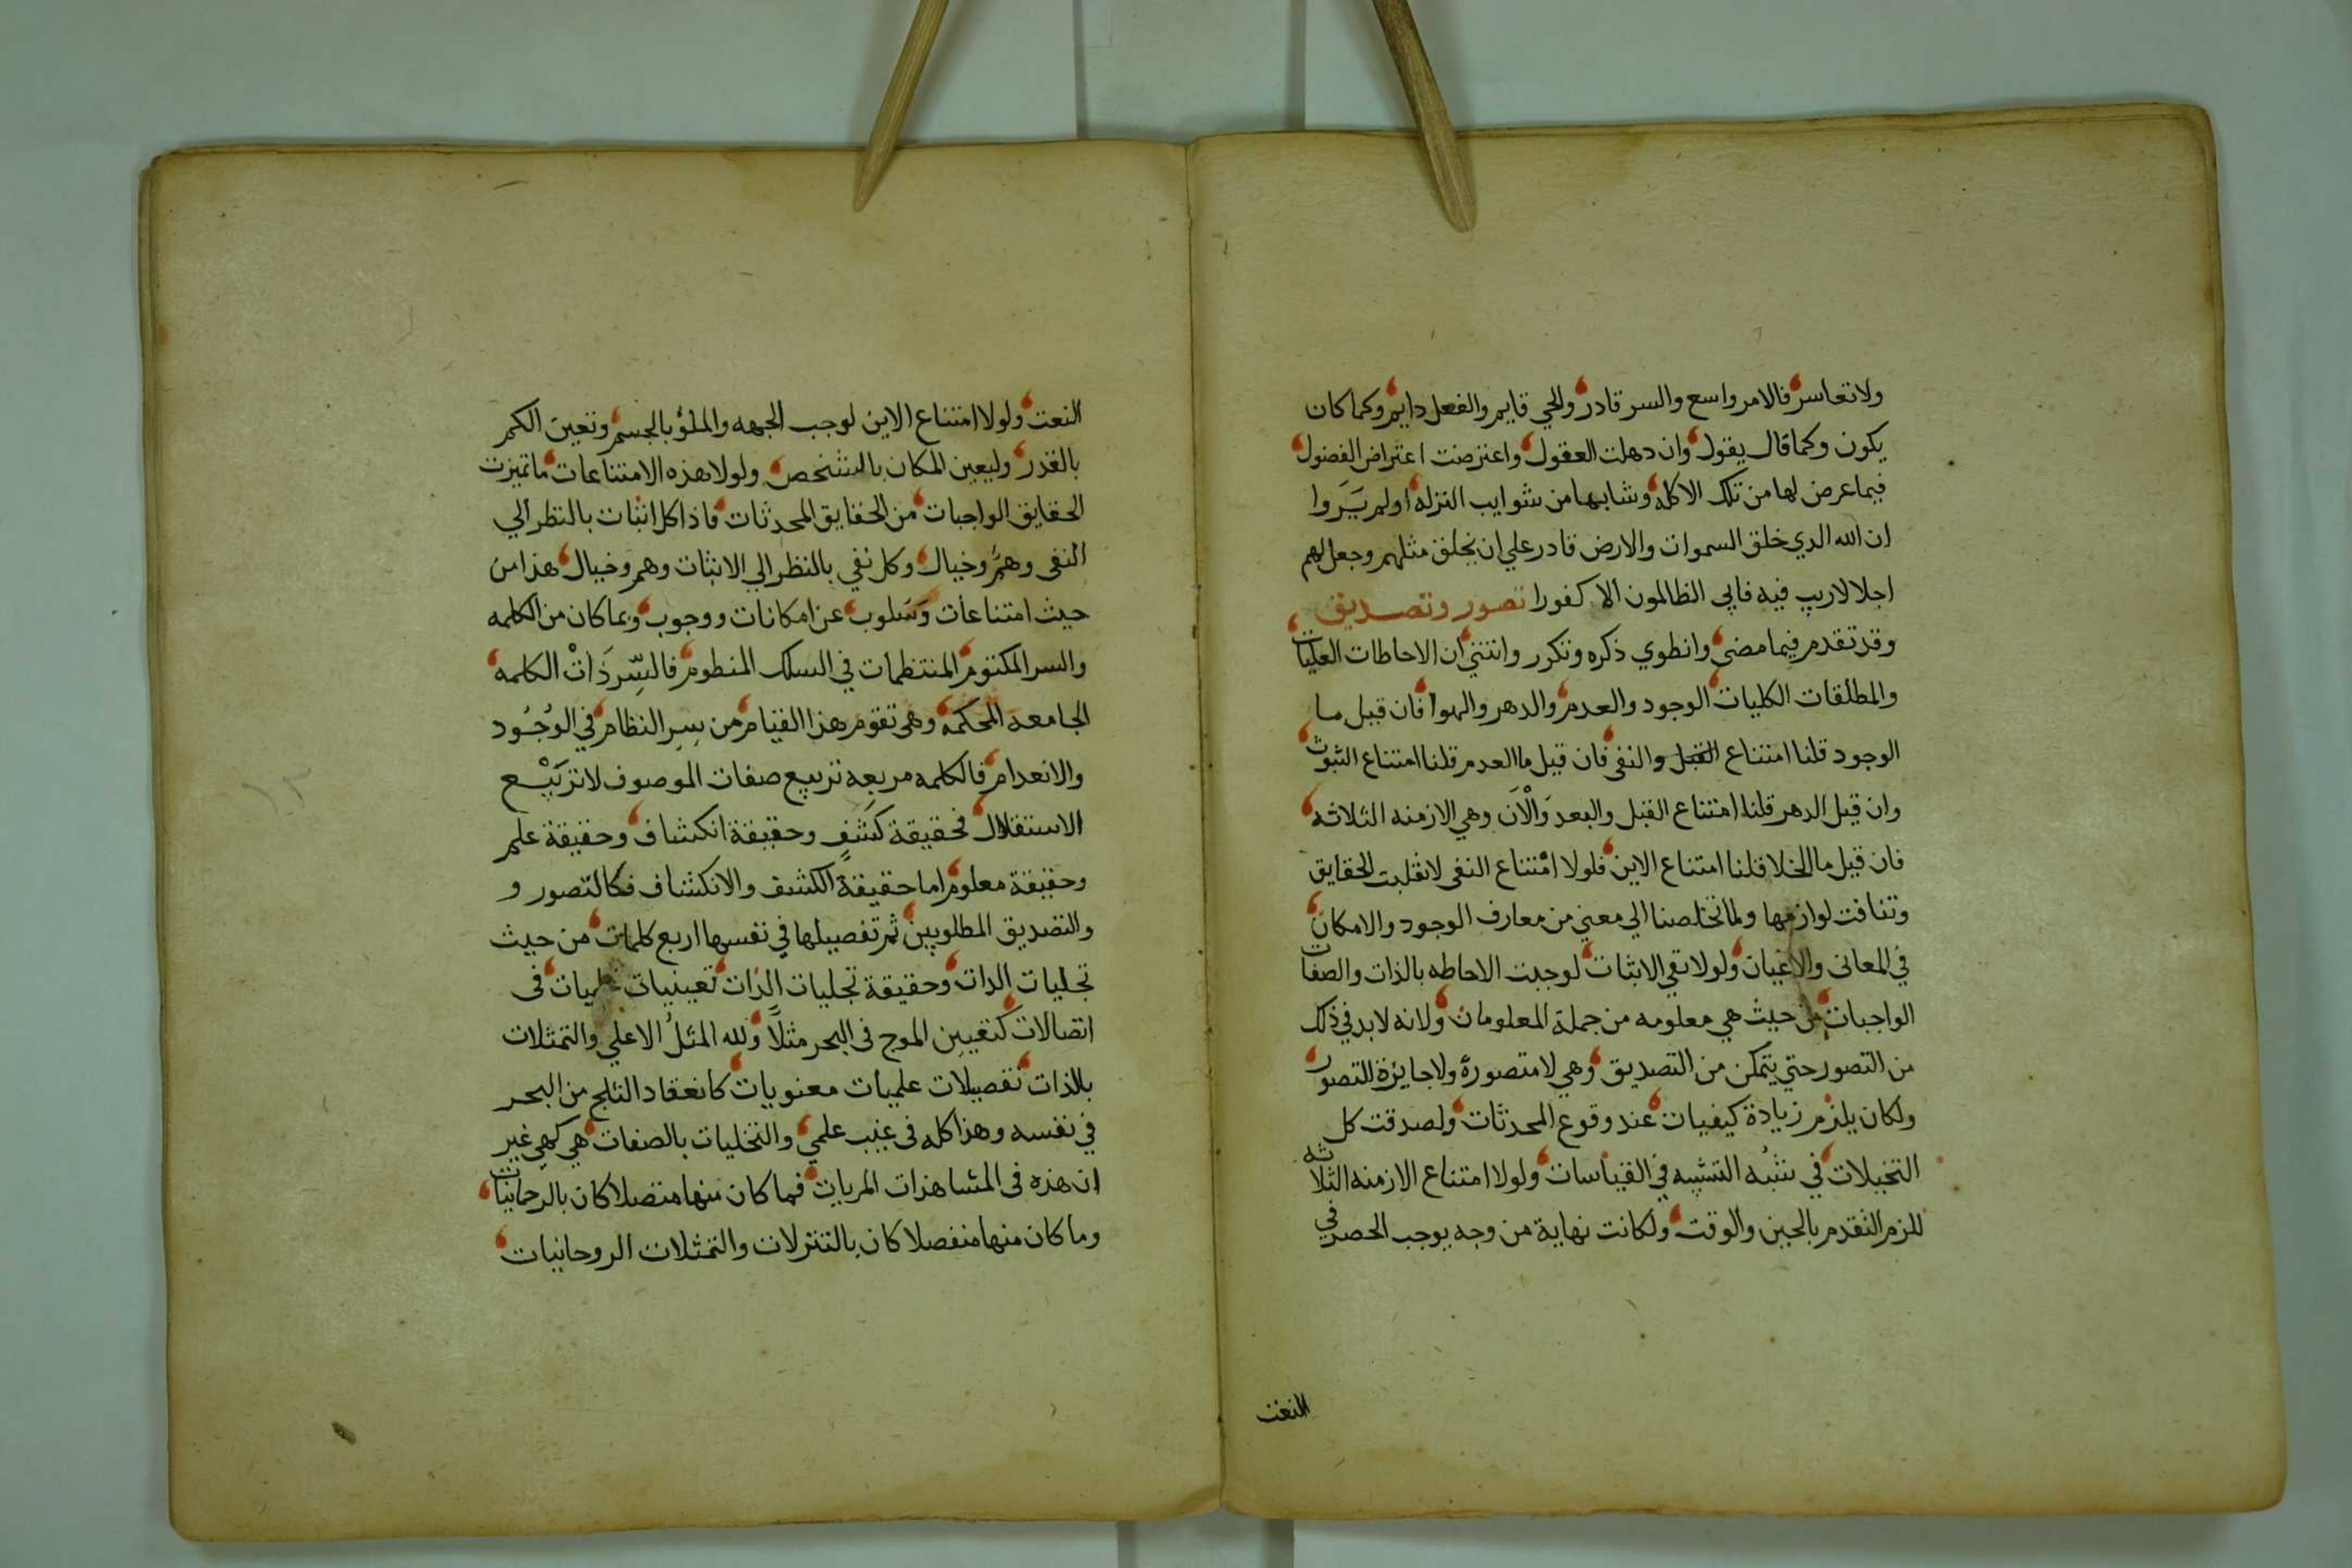 ولا تعاسر فالامر واسع والسر قادر والحي قايم والفعل دايم وكما كان
يكون وكما قال يقول وان دهلت العقول واعترضت اعتراض الفضول
فيما عرض لها من تلك الاكله وشابها من شوايب التزله اولم يَرَوا
ان الله الدي خلق السموات والارض قادر علي ان يخلق مثلهم وجعل لهم
اجلا لاريب فيه فابي الظالمون الا كفورا تصور وتصديق
وقد تقدم فيما مضي وانطوي ذكره وتكرر وانتني ان الاحاطات العليات
والمطلقات الكليات الوجود والعدم والدهر والهوا فان قيل ما
الوجود قلنا امتناع القبل والنفي فان قيل ما العدم قلنا امتناع الثبوت
وان قيل الدهر قلنا امتناع القبل والبعد وَالْآن وهي الازمنه الثلاثه
فان قيل ما الخلا قلنا امتناع الاين فلولا امتناع النفي لانقلبت الحقايق
وتنافت لوازمها ولما تخلصنا الي معني من معارف الوجود والامكان
في المعاني والاعيان ولولا نفي الاثبات لوجبت الاحاطه بالذات والصفات
الواجبات من حيث هي معلومه من جملة المعلومات ولانه لابد في ذلك
من التصور حتي يتمكن من التصديق وهي لا متصورة ولا جايزة التصور
ولكان يلزم زيادة كيفيات عند وقوع المحدثات ولصدقت كل
التخيلات في شبُه التشبيه في القياسات ولولا امتناع الازمنه الثلاثه
للزم التقدم بالحين والوقت ولكانت نهاية من وجه يوجب الحصر في
النعت
النعت ولولا امتناع الاين لوجب الجهه والملؤ بالجسم وتعين الكم
بالقدر وليعين المكان بالتشخص ولولا هذه الامتناعات ما تميزت
الحقايق الواجبات من الحقايق المحدثات فاذا كل اثبات بالنظر الي
النفي وهمٌ وخيال وكل نفي بالنظر الي الاثبات وهم وخيال هذا من
حيث امتناعات وسَلوب عن امكانات ووجوب وبما كان من الكلمه
والسر المكتوم المنتظمات في السلك المنظوم فالسِّر ذَاتْ الكلمه
الجامعه المحكمه وهي تقوم هذا القيام من سِر النظام في الوُجُود
والانعدام فالكلمه مربعه تربيع صفات الموصوف لا تَربْيع
الاستقلال فحقيقة كشَفٍ وحقيقة انكشاف وحقيقة علم
وحقيقة معلوم اما حقيقة الكشف والانكشاف فكالتصور و
والتصديق المطلوبين ثم تفصيلها في نفسها اربع كلمات من حيث
تجليات الذات وحقيقة تجليات الذات تعينيات في
اتصالات كتعيين الموج في البحر مثلاً ولله المثلُ الاعلي والتمثلات
بالذات تفصيلات علميات معنويات كانعقاد الثلج من البحر
في نفسه وهذا كله في غيب علمي والتخليات بالصفات هي كهي غير
ان هذه في المشاهدات المريات فما كان منها متصلا كان بالرحمانيات
وما كان منها منفصلا كان بالتنزلات والتمثلات الروحانيات